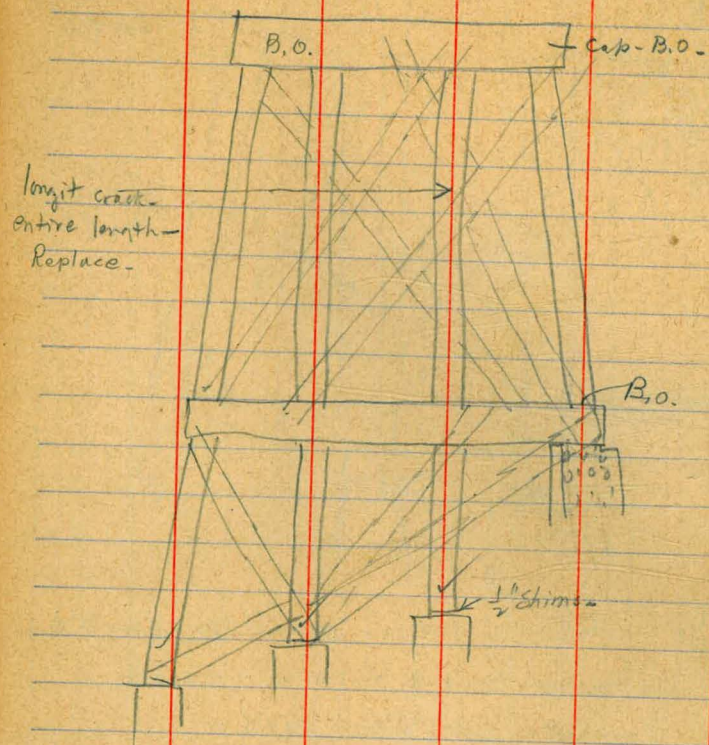 B.O.
Cap - B.O. -
longit crack -
entire length -
Replace -
B.O.
1/2" Shims -